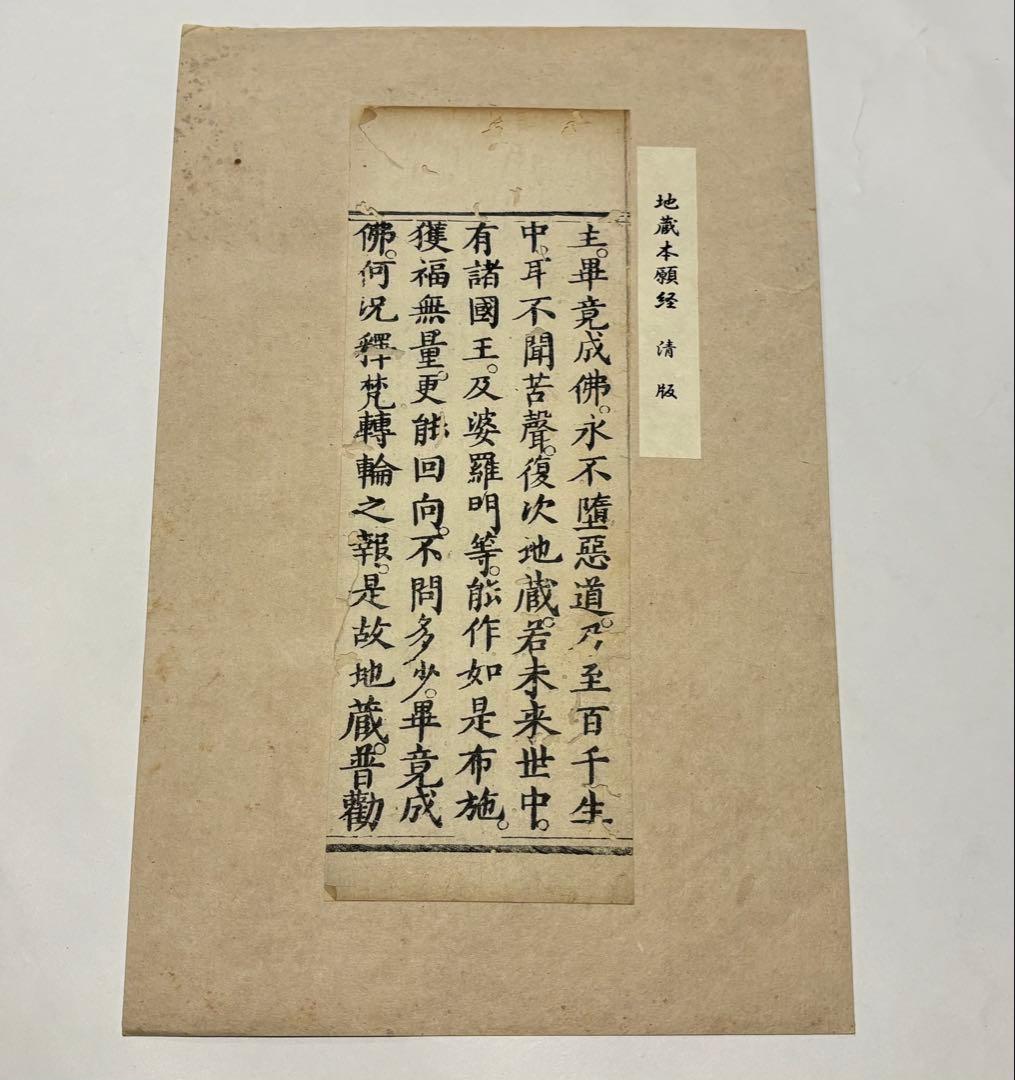 地蔵本願経　清版
主。畢竟成佛。永不墮惡道。乃至百千生
中。耳不聞苦聲。復次地藏。若未来世中。
有諸國王。及婆羅門等。能作如是布施。
獲福無量。更能回向。不問多少。畢竟成
佛。何况釋梵轉輪之報。是故地藏。普勸